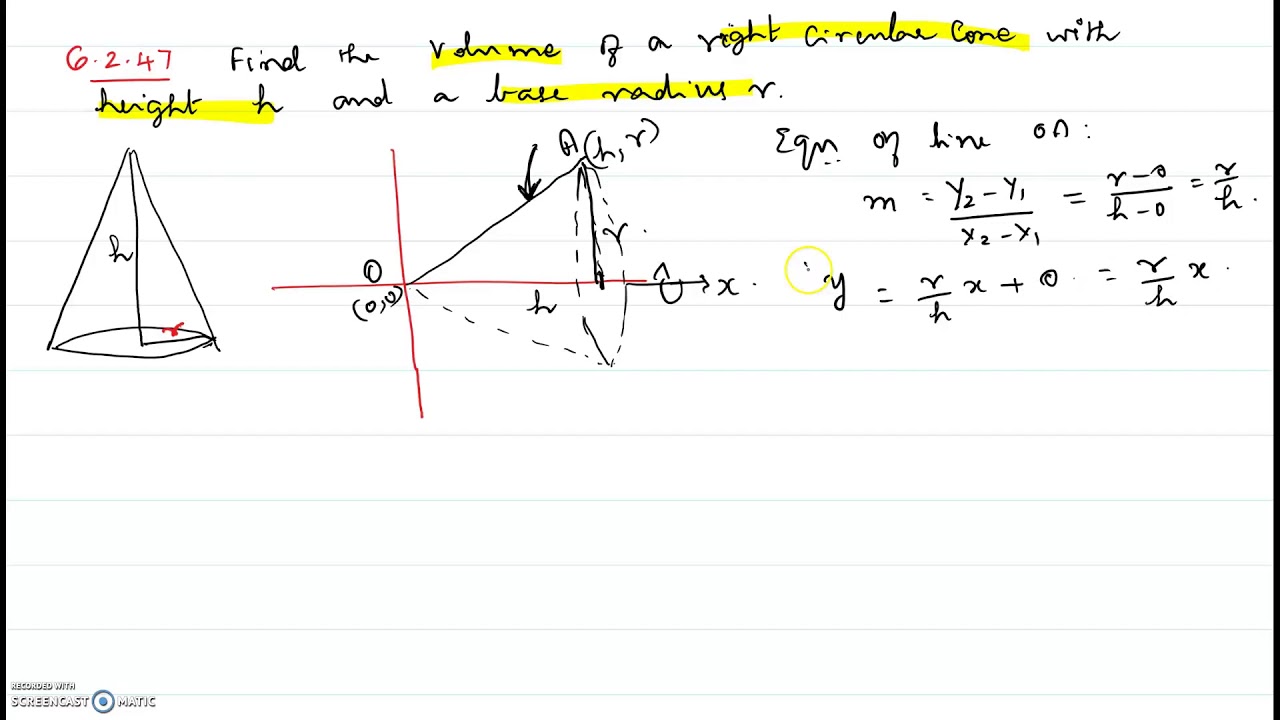 6.2.47 Find the volume of a right circular cone with
height h and a base radius r.
h
r
A(h, r)
r.
O
(0,0)
h
x.
Eqn. of line OA:
m = y₂ - y₁ / x₂ - x₁ = r - 0 / h - 0 = r / h.
∴ y = r/h x + 0. = r/h x.
RECORDED WITH
SCREENCAST MATIC